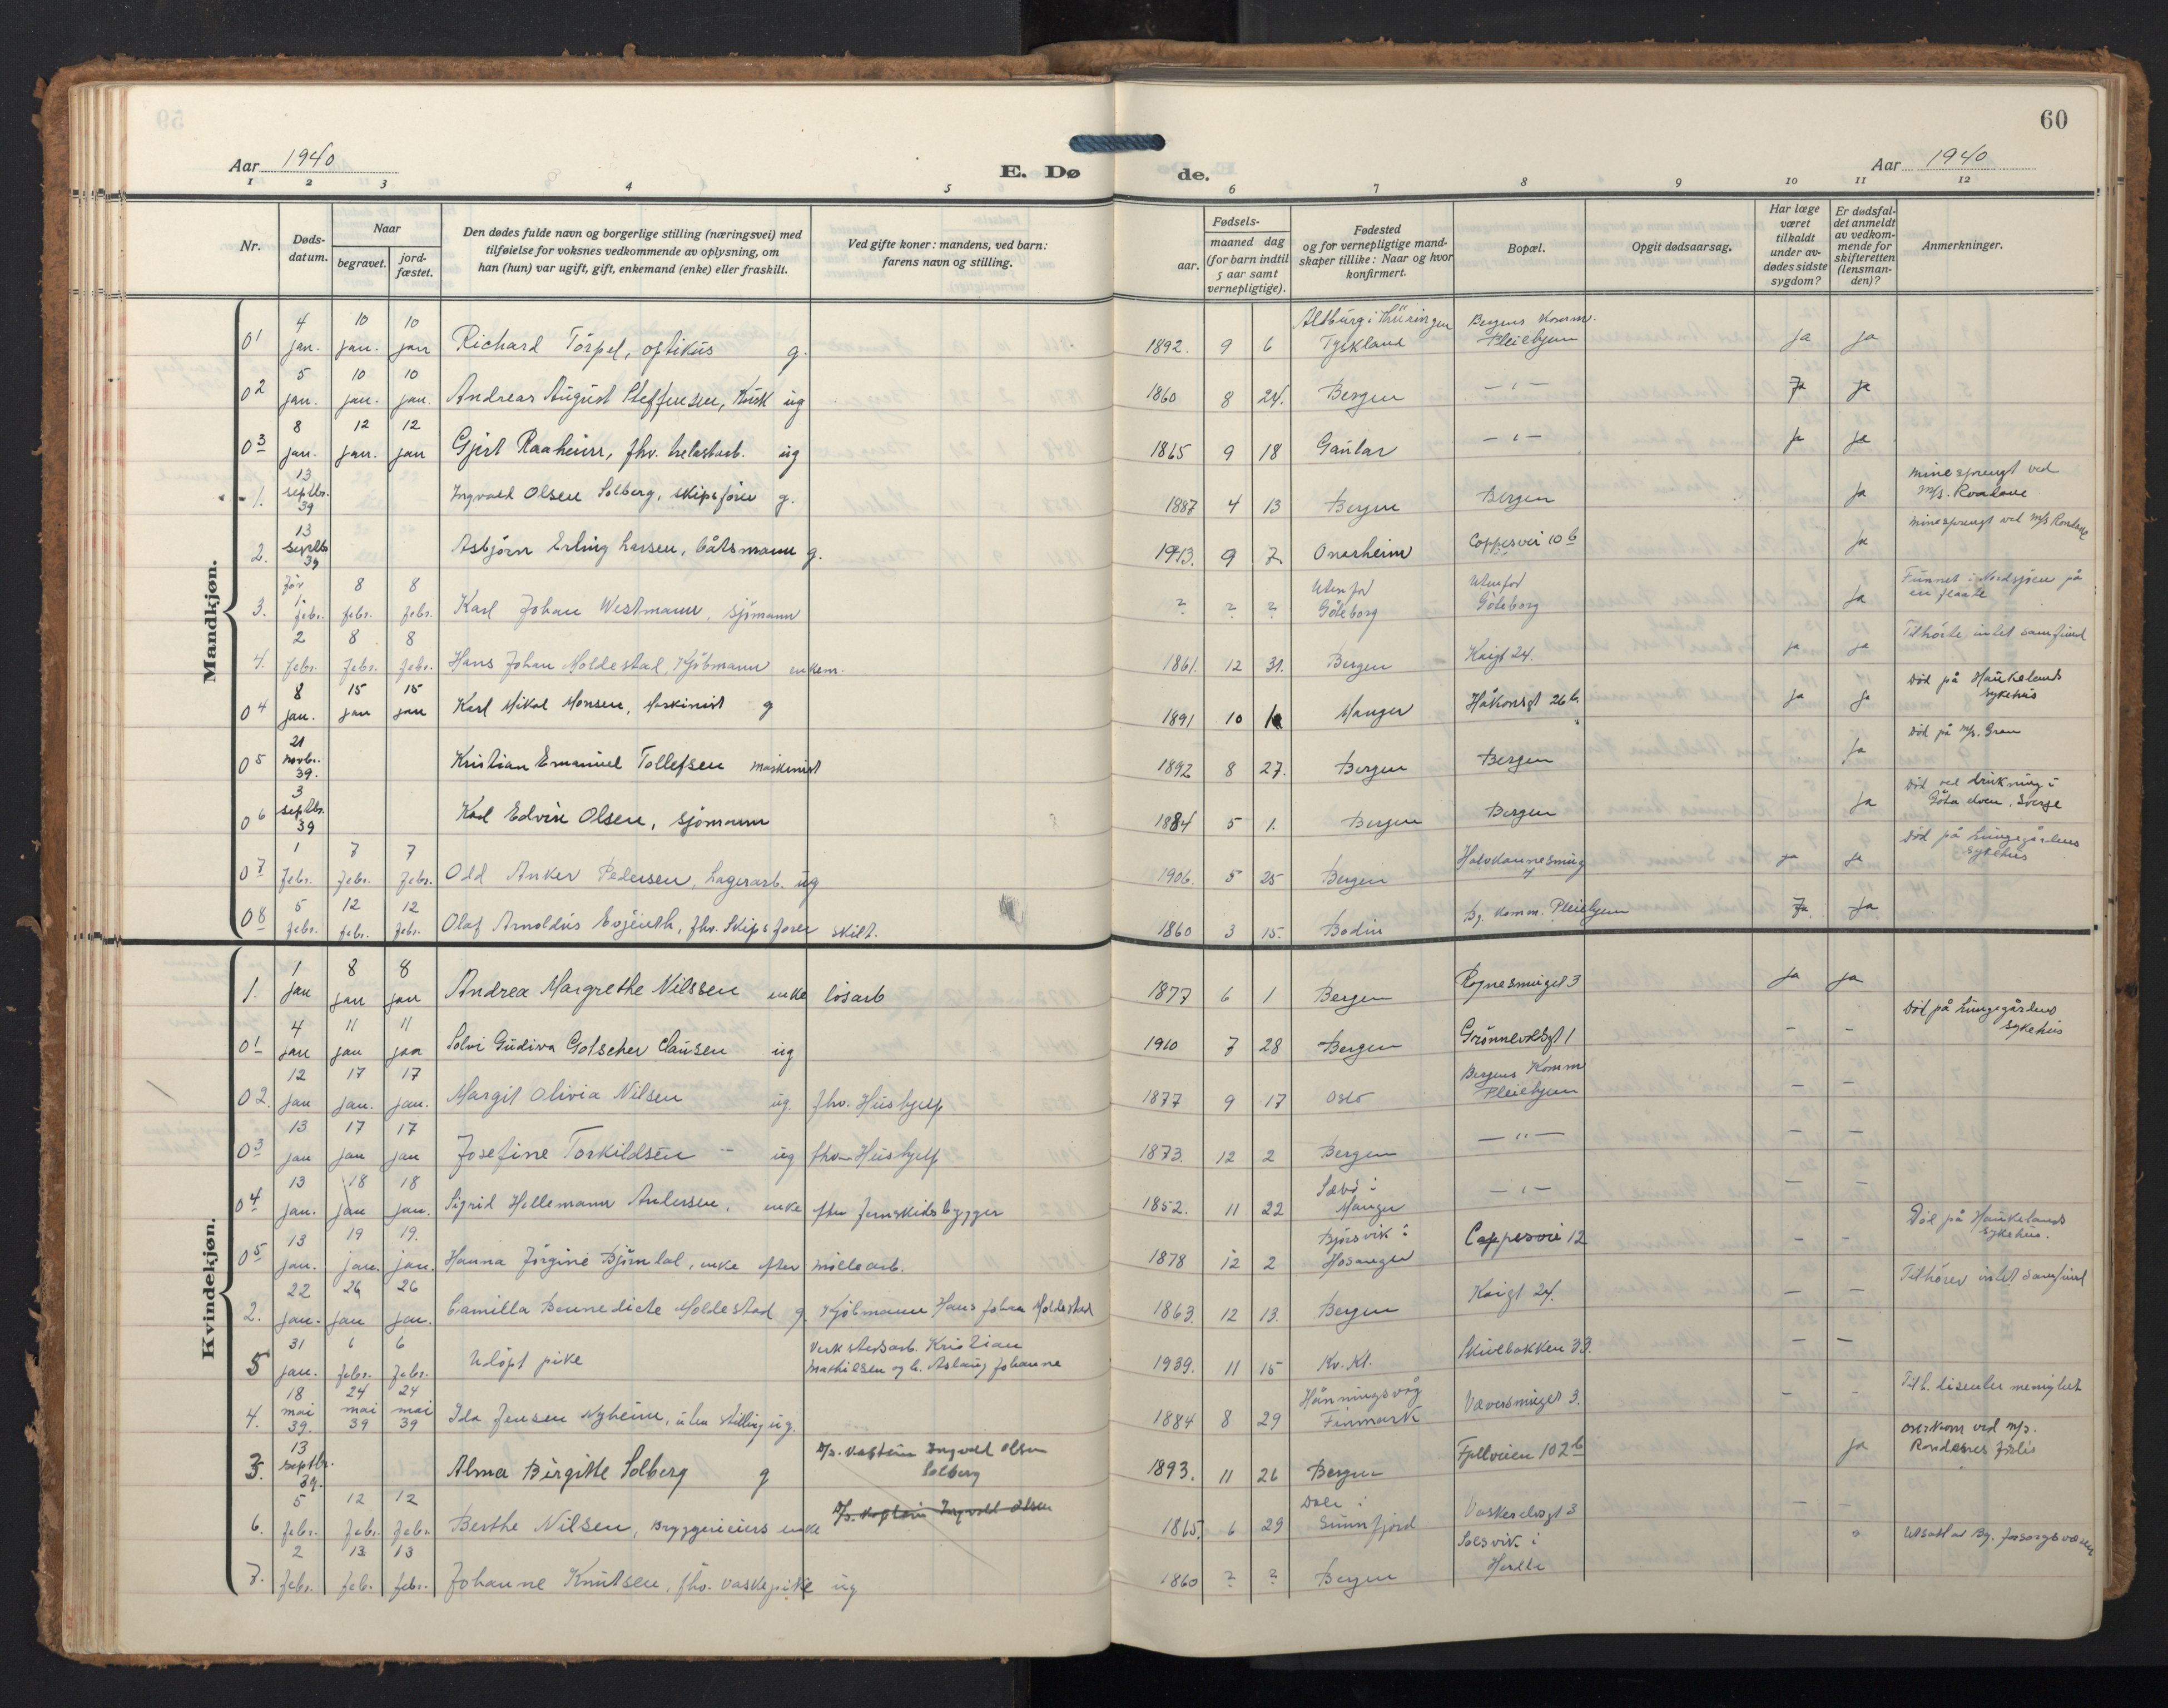 60
Aar 1940
E. Dø
de.
Aar 1940
1 2 3 4 5 6 7 8 9 10 11 12
Nr.
Døds-
datum.
Naar
begravet.
jord-
fæstet.
Den dødes fulde navn og borgerlige stilling (næringsvei) med
tilføielse for voksnes vedkommende av oplysning, om
han (hun) var ugift, gift, enkemand (enke) eller fraskilt.
Ved gifte koner: mandens, ved barn:
farens navn og stilling.
Fødsels-
aar.
maaned dag
(for barn indtil
5 aar samt
vernepligtige).
Fødested
og for vernepligtige mand-
skaper tillike: Naar og hvor
konfirmert.
Bopæl.
Opgit dødsaarsag.
Har læge
været
tilkaldt
under av-
dødes sidste
sygdom?
Er dødsfal-
det anmeldt
av vedkom-
mende for
skifteretten
(lensman-
den)?
Anmerkninger.
Mandkjøn.
01 4 jan. 10 jan. 10 jan Richard Törpel, optikus g. 1892. 9 6 Altburg i Thüringen Tyskland Bergens Komm. Pleiehjem ja ja
02 5 jan. 10 jan. 10 jan. Andreas August Steffensen, Kusk ug 1860 8 24. Bergen — " — Ja ja
03 8 jan. 12 jan. 12 jan Gjert Raaheim, fhv. ug 1865 9 18 Gaular — " — ja ja
1. 13 septbr. 39 Ingvald Olsen Solberg, skipsfører g. 1887 4 13 Bergen Bergen ja minesprengt ved m/s. Rondane
2. 13 septb 39 Asbjörn Erling Larsen, båtsmann g. 1913. 9 7 Onarheim Coppesvei 10 b ja minesprengt ved m/s Rondane
3. før 1 febr. 8 febr. 8 febr. Karl Johan Westmann, sjömann ? ? ? Utenfor Göteborg Utenfor Göteborg ja Funnet i Nordsjöen på en flaate
4. 2 febr. 8 febr. 8 febr. Hans Johan Moldestad, Kjöbmann enkem. 1861. 12 31. Bergen Kaigt 24. ja ja Tilhörte intet samfund
04 8 jan. 15 jan 15 jan Karl Mikal Monsen, Maskinist g 1891 10 Manger Håkonsgt 26 b. ja ja Död på Haukelands sykehus
05 21 novbr. 39. Kristian Emanuel Tollefsen maskinist 1892 8 27. Bergen Bergen ja död på m/s. Gran
06 3 septbr. 39 Karl Edvin Olsen, sjömann 1884 5 1. Bergen Bergen ja Död ved drukning i Göta elven, Sverge
07 1 febr. 7 febr. 7 febr. Odd Anker Pedersen, Lagerarb. ug 1906. 5 25 Bergen Halvkannesmug 7 ja ja Död på Lungegårdens sykehus
08 5 febr. 12 febr. 12 febr. Olaf Arnoldus Evjenth, fhv. Skipsfører skilt. 1860 3 15. Bodin Bg. Komm. Pleiehjem Ja. ja
Kvindekjøn.
1. 1 jan 8 jan 8 jan Andrea Margrethe Nilssen enke lösarb 1877 6 1 Bergen Rognesmuget 3 ja ja
01 4 jan 11 jan 11 jan Solvi Gudiva Gotscher Clausen ug 1910 7 28 Bergen Grönnevoldsgt 1 – – Död på Lungegårdens sykehus
02. 12 jan 17 jan. 17 jan. Margit Olivia Nilsen ug. fhv. Hushjelp 1877 9 17 Oslo Bergens Komm Pleiehjem – –
03 13 jan 17 jan 17 jan Josefine Torkildsen ug fhv. Hushjelp 1873. 12 2 Bergen — " — – –
04 13 jan. 18 jan 18 jan. Sigrid Hellemann Andersen, enke efter 1852. 11 22 Sæbö i Manger — " — – –
05 13 jan. 19 jan. 19. jan. Hanna Jörgine Björndal, enke efter mölleearb. 1878 12 2 Bjørsvik i Hosanger Coppesvei 12 – – Död på Haukelands sykehus.
2. 22 jan. 26 jan 26 jan. Camilla Bennedicte Moldestad g. Kjöbmann Hans Johan Moldestad 1863. 12 13. Bergen Kaigt 24. – – Tilhörer intet samfund
5 31 jan. 6 febr. 6 febr. Udöpt pike Verkstedsarb. Kristian Mathiesen og h. Aslaug Johanne 1939. 11 15 Kv. Kl. Skivebakken 33. – –
4. 18 mai 39. 24 mai 39 24 mai 39 Ida Jensen Nyheim, uten stilling ug. 1884 8 29 Hånningsvåg Finmark Væversmuget 3. – – Tilh. dissenter menighet
3. 13 septbr. 39. Alma Birgitte Solberg g D/s. kaptein Ingvald Olsen Solberg 1893. 11 26 Bergen Fjellveien 102 b ja omkom ved m/s. Rondanes forlis
6. 5 febr. 12 febr. 12 febr. Berthe Nilsen, Bryggerieiers enke D/s. kaptein Ingvald Olsen 1865. 6 29 Dale i Sunnfjord Vaskerelvsgt 3 – –
7. 2 febr. 13 febr. 13 febr. Johanne Knutsen, fhv. vaskepike ug 1860 ? ? Bergen Solsvik i Herdla " Utsatt av Bg. forsorgsvæsen